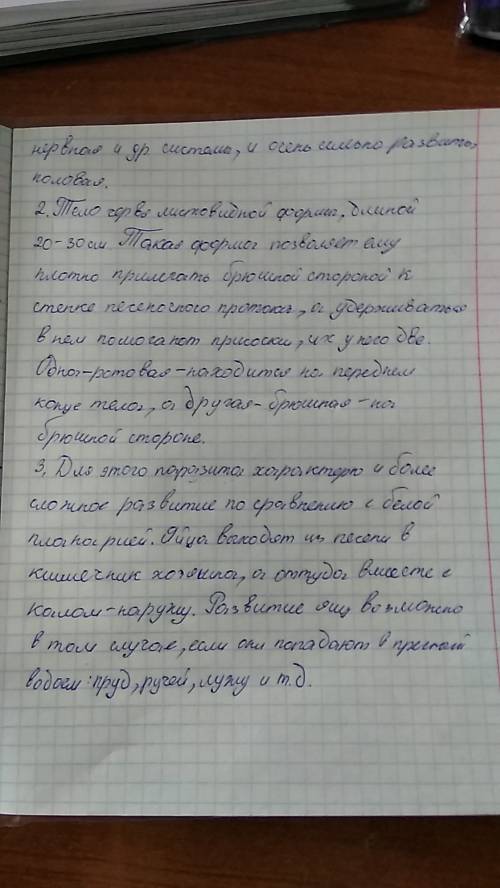 нервная и др системы, и очень сильно развита
половая.
2. Тело червя листовидной формы, длиной
20-30см. Такая форма позволяет ему
плотно прилегать брюшной стороной к
стенке печеночного протока, а удерживаться
в нем помогают присоски, их у него две.
Одна-ротовая-находится на переднем
конце тела, а другая-брюшная-на
брюшной стороне.
3. Для этого паразита характерно и более
сложное развитие по сравнению с белой
планарией. Яйца выходят из печени в
кишечник хозяина, а оттуда вместе с
калом-наружу. Развитие яиц возможно
в том случае, если они попадают в пресный
водоем: пруд, ручей, лужу и т.д.